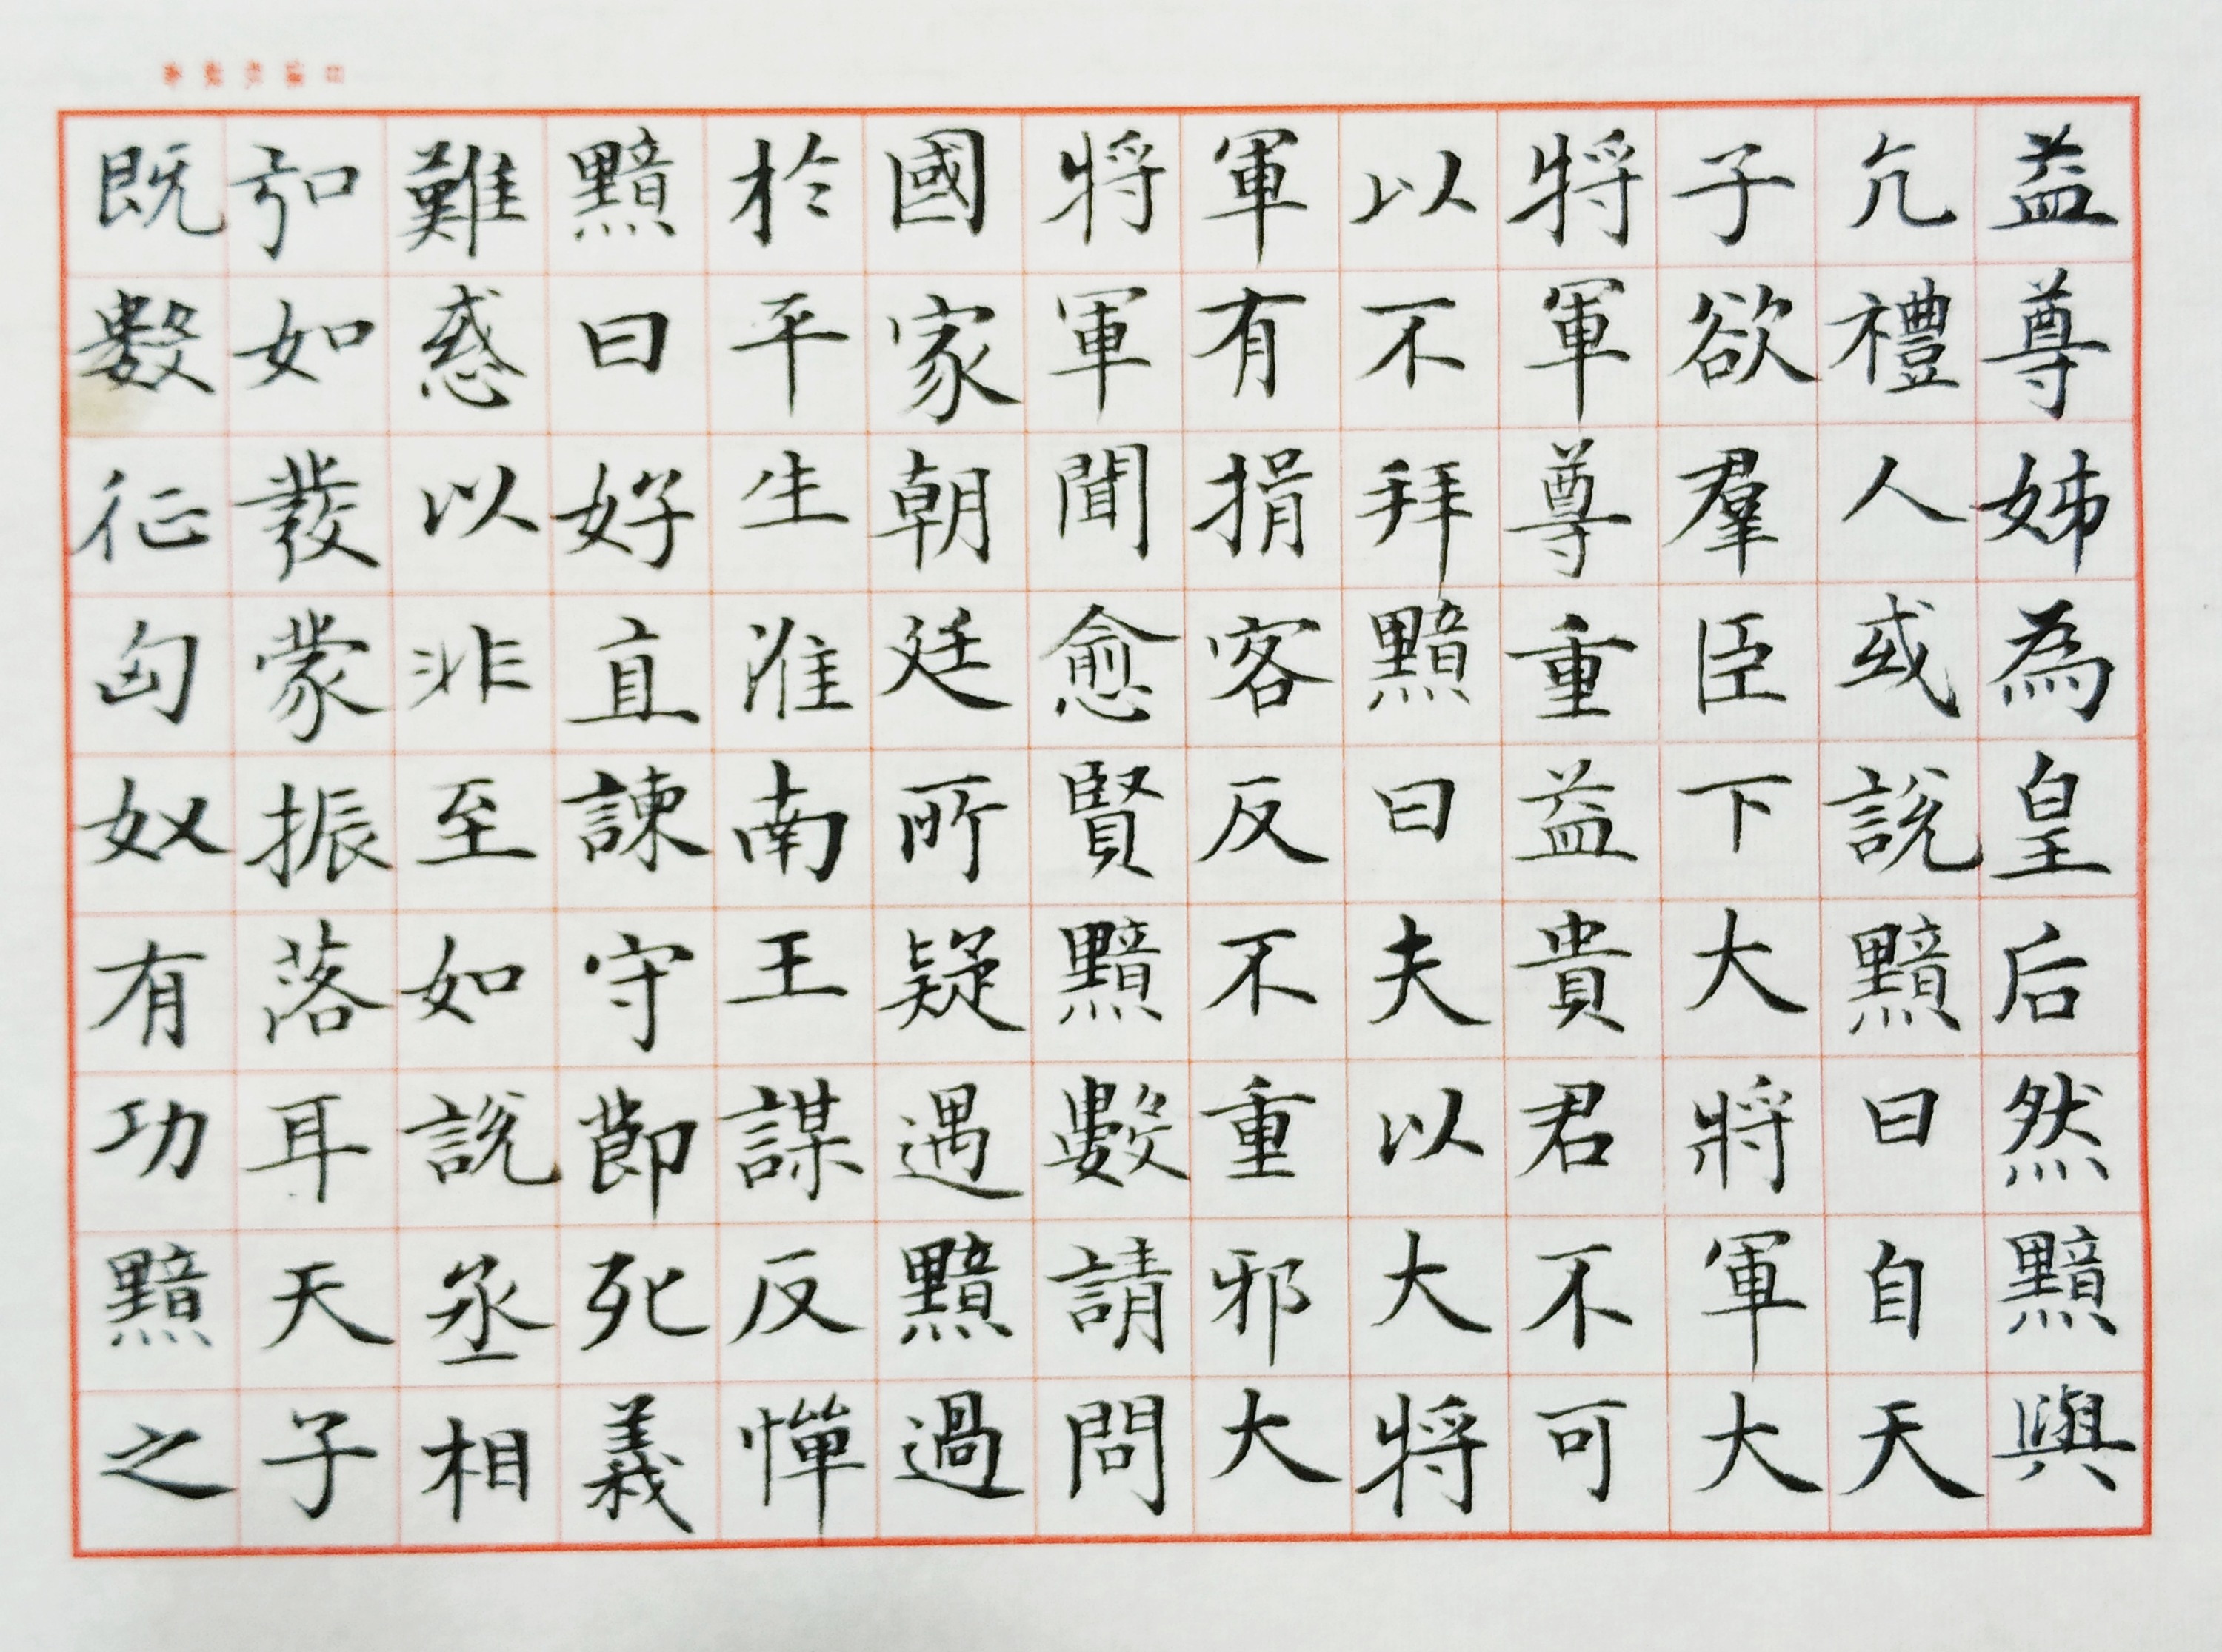 益尊姊為皇后然黯與
亢禮人或說黯曰自天
子欲羣臣下大將軍大
將軍尊重益貴君不可
以不拜黯曰夫以大將
軍有揖客反不重邪大
將軍聞愈賢黯數請問
國家朝廷所疑遇黯過
於平生淮南王謀反憚
黯曰好直諫守節死義
難惑以非至如說丞相
弘如發蒙振落耳天子
既數征匈奴有功黯之